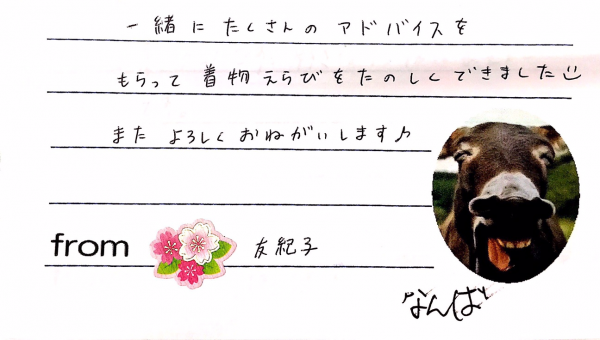 一緒に たくさんの アドバイスを
もらって 着物えらびをたのしくできました
また よろしく おねがいします♪
from 友紀子
なんば